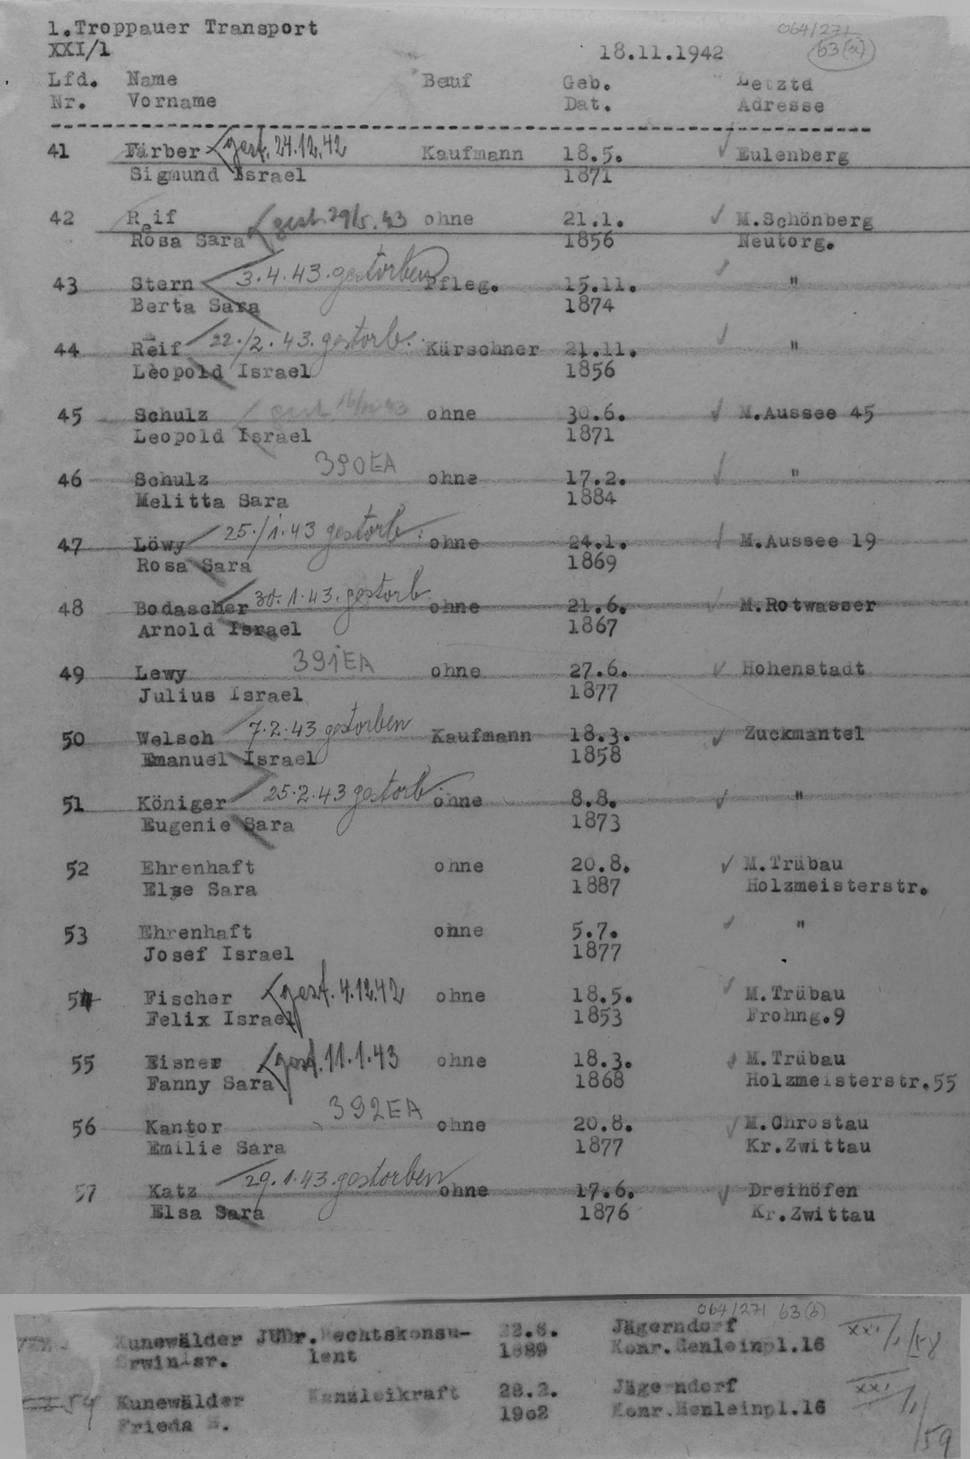 1.Troppauer Transport 064/271
XXI/1 18.11.1942 63(a)
Lfd. Name Beuf Geb. Letztd
Nr. Vorname Dat. Adresse
41 Färber gest. 24.12.42 Kaufmann 18.5. Eulenberg
Sigmund Israel 1871
42 Reif gest. 29/5.43 ohne 21.1. M.Schönberg
Rosa Sara 1856 Neutorg.
43 Stern 3.4.43.gestorben Pfleg. 15.11. "
Berta Sara 1874
44 Reif 22./2.43.gestorb. Kürschner 21.11. "
Leopold Israel 1856
45 Schulz gest. ohne 30.6. M.Aussee 45
Leopold Israel 1871
46 Schulz 390EA ohne 17.2. "
Melitta Sara 1884
47 Löwy 25./1.43 gestorb. ohne 24.1. M.Aussee 19
Rosa Sara 1869
48 Bodascher 30.1.43.gestorb. ohne 21.6. M.Rotwasser
Arnold Israel 1867
49 Lewy 391EA ohne 27.6. Hohenstadt
Julius Israel 1877
50 Welsch 7.2.43 gestorben Kaufmann 18.3. Zuckmantel
Emanuel Israel 1858
51 Königer 25.2.43 gestorb. ohne 8.8. "
Eugenie Sara 1873
52 Ehrenhaft ohne 20.8. M.Trübau
Else Sara 1887 Holzmeisterstr.
53 Ehrenhaft ohne 5.7. "
Josef Israel 1877
54 Fischer gest. 4.12.42 ohne 18.5. M.Trübau
Felix Israel 1853 Frohng.9
55 Eisner gest. 11.1.43 ohne 18.3. M.Trübau
Fanny Sara 1868 Holzmeisterstr.55
56 Kantor 392EA ohne 20.8. M.Chrostau
Emilie Sara 1877 Kr.Zwittau
57 Katz 29.1.43.gestorben ohne 17.6. Dreihöfen
Elsa Sara 1876 Kr.Zwittau
064/271 63(b)
Kunewälder JUDr. Rechtskonsu- Jägerndorf XXI/1/58
Erwin Isr. lent 1889 Konr.Henleinpl.16
59 Kunewälder Kanzleikraft 28.2. Jägerndorf XXI/1/59
Frieda S. 1902 Konr.Henleinpl.16